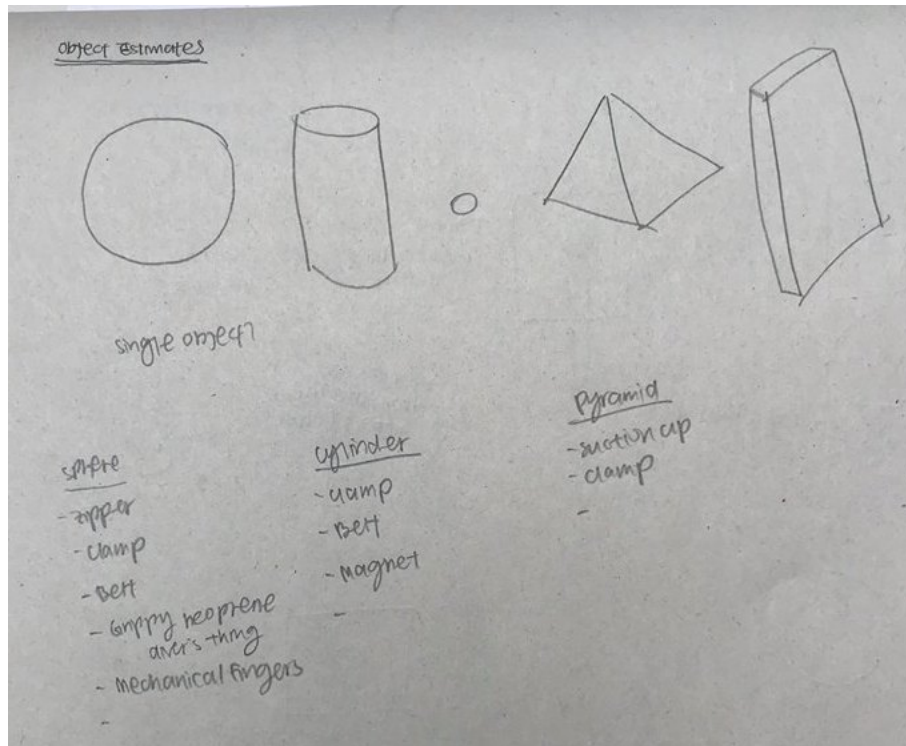 object Estimates
single object?
sphere
- zipper
- clamp
- Belt
- Grippy neoprene
thing
- mechanical fingers
-
cylinder
- clamp
- Belt
- Magnet
-
pyramid
- suction cup
- clamp
-